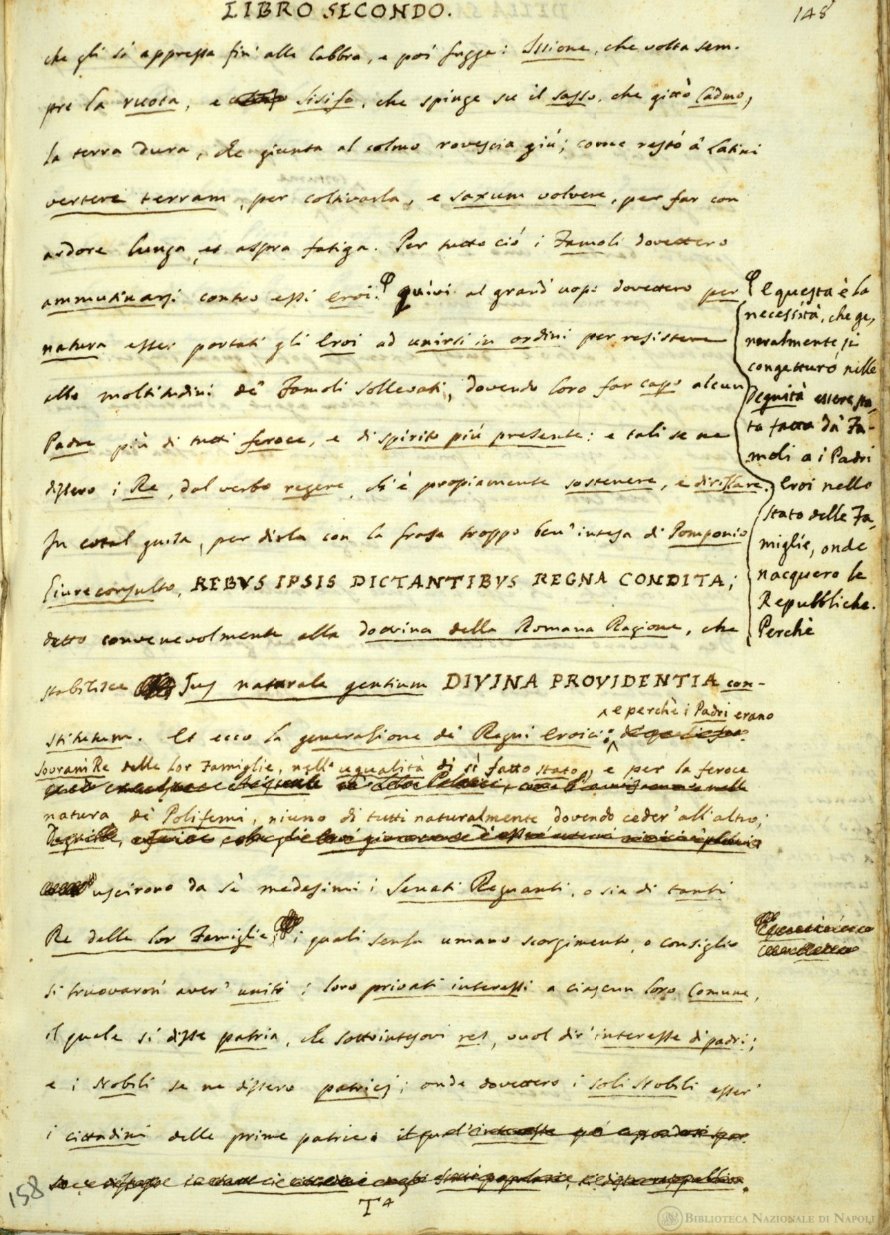 LIBRO SECONDO.
148
che gli si appressa fin' alle labbra, e poi fugge: Issione, che volta sem-
pre la ruota, e Sisifo, che spinge su il sasso, che gittò Cadmo,
la terra dura, che giunta al colmo rovescia giù; come restò a' Latini
vertere terram, per coltivarla, e saxum volvere, per far con
ardore lunga, et aspra fatiga. Per tutto ciò i Famoli dovettero
ammutinarsi contro essi Eroi. Quivi al grand' uopo dovettero per
natura esser portati gli Eroi ad unirsi in ordini per resistere
alle moltitudini de' Famoli sollevati, dovendo loro far capo alcun
Padre più di tutti feroce, e di spirito più presente: e tali se ne
dissero i Re, dal verbo regere, ch'è propiamente sostenere, e dirizzare.
In cotal guisa, per dirla con la frase troppo ben' intesa di Pomponio
Giureconsulto, REBVS IPSIS DICTANTIBVS REGNA CONDITA;
detto convenevolmente alla dottrina della Romana Ragione, che
stabilisce Jus naturale gentium DIVINA PROVIDENTIA con-
stitutum. Et ecco la generazione de' Regni Eroici:
e perchè i Padri erano
Sovrani Re delle lor Famiglie, nell' ugualità di sì fatto stato, e per la feroce
natura de' Polifemi, niuno di tutti naturalmente dovendo ceder' all'altro;
uscirono da sè medesimi i Senati Regnanti, o sia di tanti
Re delle lor Famiglie; i quali senza umano scorgimento, o consiglio
si truovaron' aver' uniti i loro privati interessi a ciascun loro Comune,
il quale si disse patria, che sottintesovi res, vuol dir' interesse di padri;
e i Nobili se ne dissero patricj; onde dovettero i soli Nobili esser'
i cittadini delle prime patrie.
T4
E questa è la
necessità, che ge,
neralmente si
congetturò nelle
Degnità essere sta,
ta fatta da' Fa-
moli a i Padri
Eroi nello
stato delle Fa,
miglie, onde
nacquero le
Repubbliche.
Perchè
158
BIBLIOTECA NAZIONALE DI NAPOLI